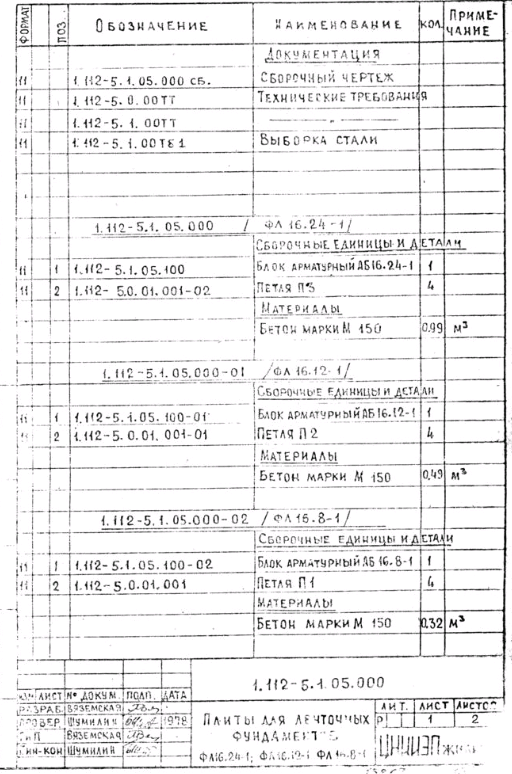 ФОРМАТ ПОЗ. ОБОЗНАЧЕНИЕ НАИМЕНОВАНИЕ КОЛ. ПРИМЕЧАНИЕ
ДОКУМЕНТАЦИЯ
11 1.112-5.1.05.000 СБ. СБОРОЧНЫЙ ЧЕРТЕЖ
11 1.112-5.0.00ТТ ТЕХНИЧЕСКИЕ ТРЕБОВАНИЯ
11 1.112-5.1.00ТТ — " —
11 1.112-5.1.00ТБ1 ВЫБОРКА СТАЛИ
1.112-5.1.05.000 /ФЛ 16.24-1/
СБОРОЧНЫЕ ЕДИНИЦЫ И ДЕТАЛИ
11 1 1.112-5.1.05.100 БЛОК АРМАТУРНЫЙ АБ16.24-1 1
11 2 1.112-5.0.01.001-02 ПЕТЛЯ П3 4
МАТЕРИАЛЫ
БЕТОН МАРКИ М 150 0,99 М³
1.112-5.1.05.000-01 /ФЛ 16.12-1/
СБОРОЧНЫЕ ЕДИНИЦЫ И ДЕТАЛИ
11 1 1.112-5.1.05.100-01 БЛОК АРМАТУРНЫЙ АБ16.12-1 1
11 2 1.112-5.0.01.001-01 ПЕТЛЯ П2 4
МАТЕРИАЛЫ
БЕТОН МАРКИ М 150 0,49 М³
1.112-5.1.05.000-02 /ФЛ 16.8-1/
СБОРОЧНЫЕ ЕДИНИЦЫ И ДЕТАЛИ
11 1 1.112-5.1.05.100-02 БЛОК АРМАТУРНЫЙ АБ 16.8-1 1
11 2 1.112-5.0.01.001 ПЕТЛЯ П1 4
МАТЕРИАЛЫ
БЕТОН МАРКИ М 150 0.32 М³
1.112-5.1.05.000
ЛИСТ № ДОКУМ. ПОДП. ДАТА
РАЗРАБ. ВЯЗЕМСКАЯ
ПРОВЕР. ШУМИЛИН 1978
ГИП ВЯЗЕМСКАЯ
ШУМИЛИН
ПЛИТЫ ДЛЯ ЛЕНТОЧНЫХ
ФУНДАМЕНТОВ
ФЛ16.24-1; ФЛ16.12-1 ФЛ 16.8-1
ЛИТ. ЛИСТ ЛИСТОВ
Р 1 2
ЦНИИЭП жилища